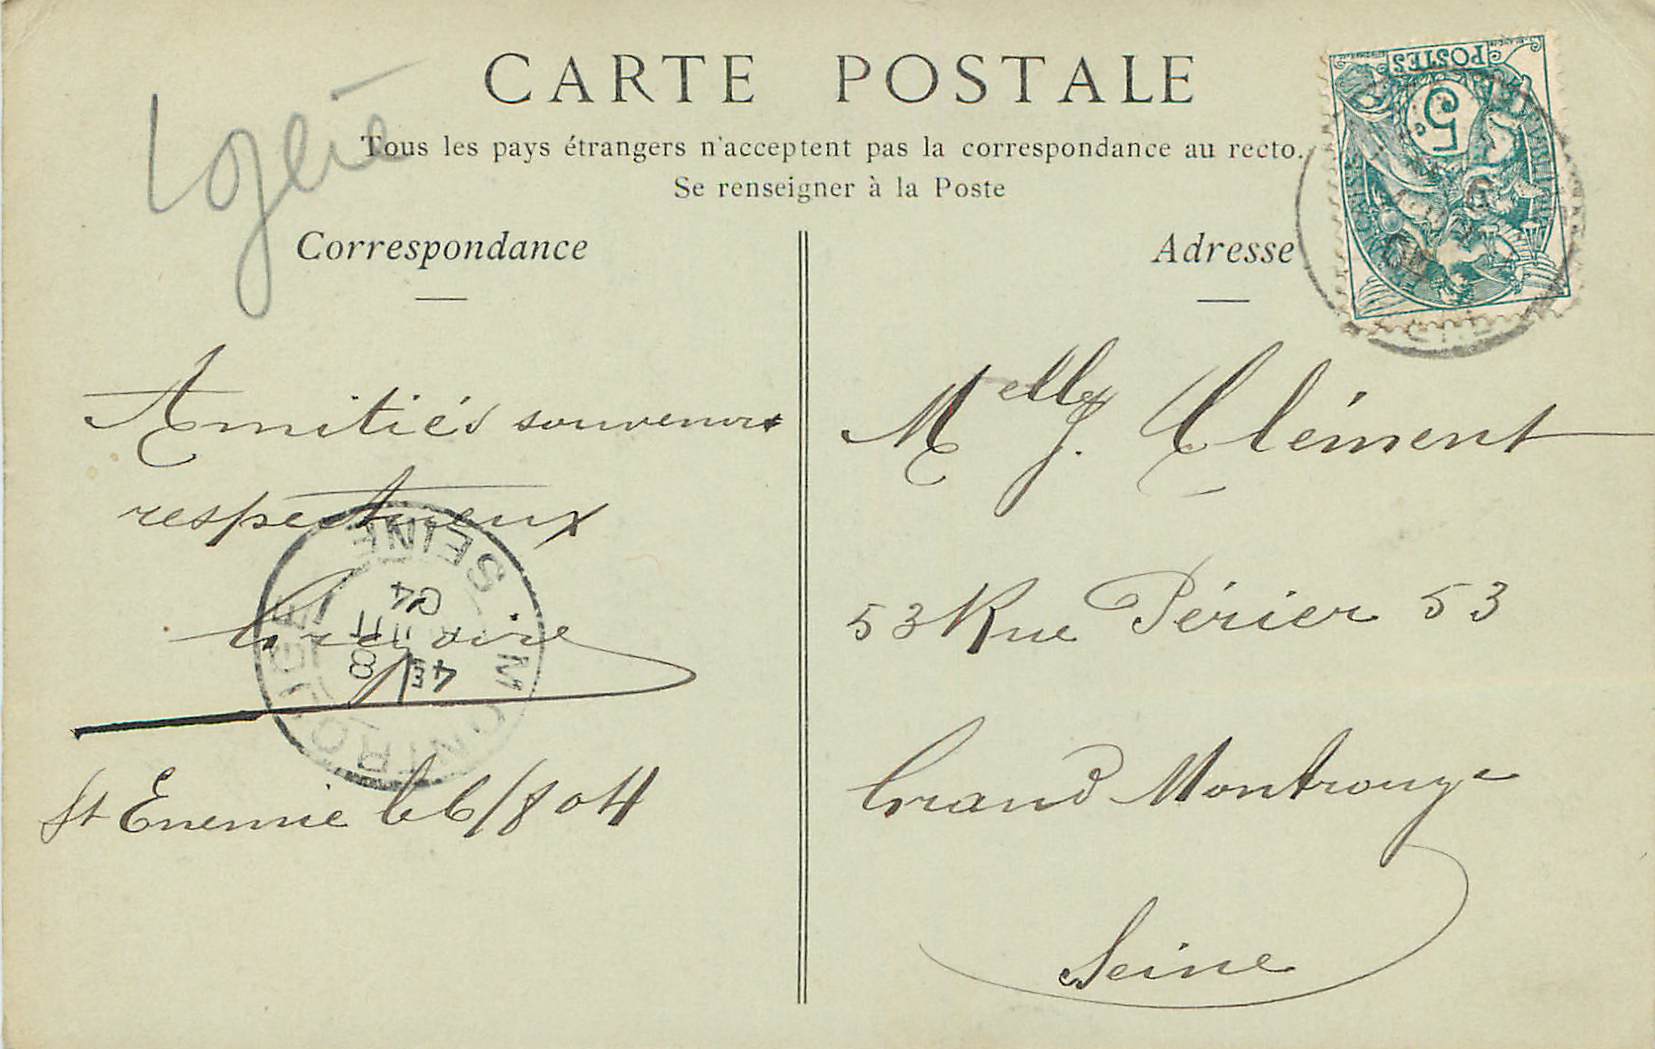 CARTE POSTALE
Tous les pays étrangers n'acceptent pas la correspondance au recto.
Se renseigner à la Poste
Correspondance
Adresse
POSTES
5c
Amitiés souvenirs
respectueux
Grégoire
St Enemie le 6/8 04
MONTROUGE
SEINE
4E
8
04
Melle J. Clément
53 Rue Périer 53
Grand Montrouge
Seine